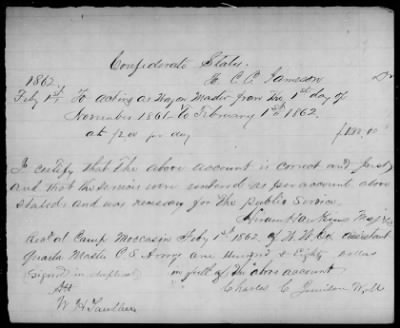 Confederate States.
1862. To C. C. Jameson Dr
Feby 1st To acting as Wagon Master from the 1st day of
November 1861 to February 1st 1862.
at $2.00 per day
I certify that the above account is correct and just
and that the services were rendered as per account above
stated and was necessary for the public service.
Hiram Hawkins Maj
Recd at Camp Moccasin Feby 1st 1862 of assistant
Quarter Master C. S. Army one hundred & Eighty dollars
(Signed in duplicate) in full of the above account
Att Charles C Jamison
W. H.